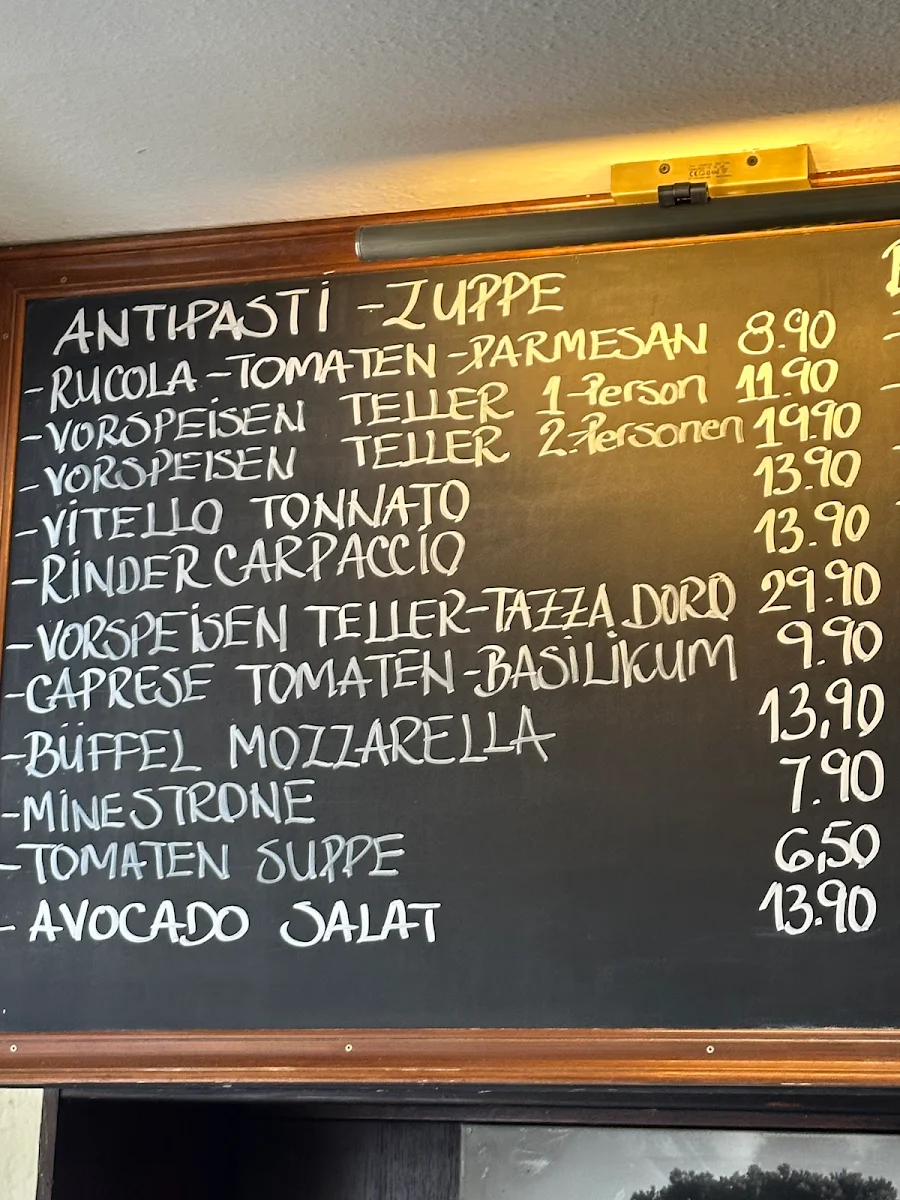 ANTIPASTI - ZUPPE
- RUCOLA - TOMATEN - PARMESAN 8.90
- VORSPEISEN TELLER 1-Person 11.90
- VORSPEISEN TELLER 2-Personen 19.90
- VITELLO TONNATO 13.90
- RINDER CARPACCIO 13.90
- VORSPEISEN TELLER - TAZZA DORO 29.90
- CAPRESE TOMATEN - BASILIKUM 9.90
- BÜFFEL MOZZARELLA 13,90
- MINESTRONE 7.90
- TOMATEN SUPPE 6,50
- AVOCADO SALAT 13.90